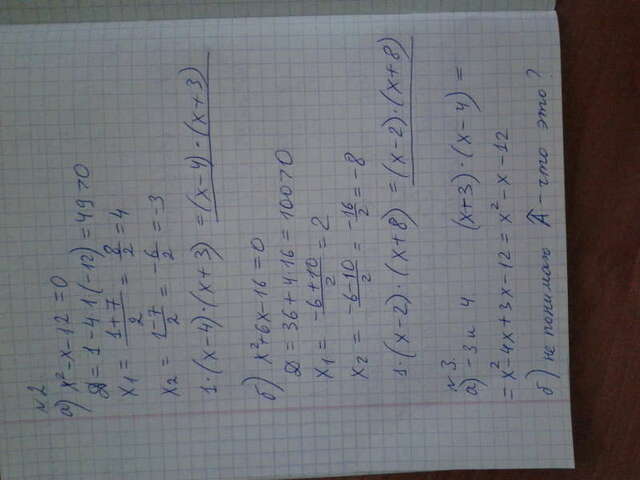 №2
а) x²-x-12=0
D=1-4·1·(-12)=49>0
x1 = (1+7)/2 = 8/2 = 4
x2 = (1-7)/2 = -6/2 = -3
1·(x-4)·(x+3) = (x-4)·(x+3)
б) x²+6x-16=0
D=36+4·16=100>0
x1 = (-6+10)/2 = 2
x2 = (-6-10)/2 = -16/2 = -8
1·(x-2)·(x+8) = (x-2)·(x+8)
№3.
а) -3 и 4 (x+3)·(x-4) =
= x²-4x+3x-12 = x²-x-12
б) не понимаю А - что это?